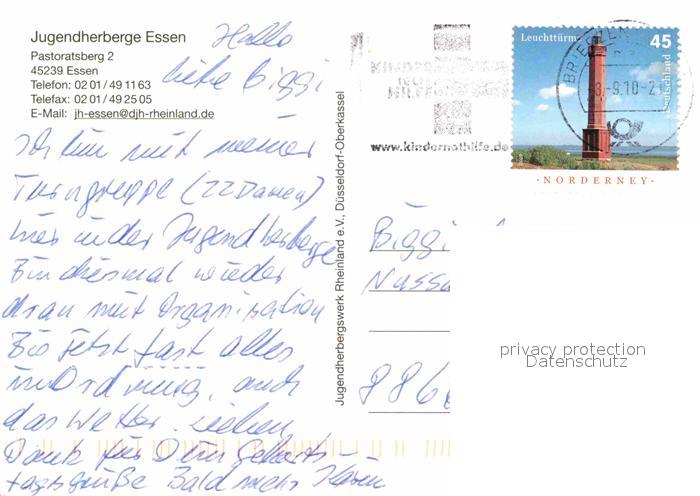 Jugendherberge Essen
Pastoratsberg 2
45239 Essen
Telefon: 02 01 / 49 11 63
Telefax: 02 01 / 49 25 05
E-Mail: jh-essen@djh-rheinland.de
Hallo
liebe Biggi
Ich bin mit meiner
Turngruppe (22 Damen)
hier in der Jugendherberge
Bin diesmal wieder
dran mit Organisation
Bis jetzt fast alles
in Ordnung, auch
das Wetter. Lieben
Dank für Deine Geburts-
tagsgrüße Bald mehr Karen
Jugendherbergswerk Rheinland e.V., Düsseldorf-Oberkassel
KINDER
NOT
HILFE
www.kindernothilfe.de
Leuchttürme
45
Deutschland
BRIEFZEN
-9.10-21
·NORDERNEY·
Biggi
Nussa
886
privacy protection
Datenschutz